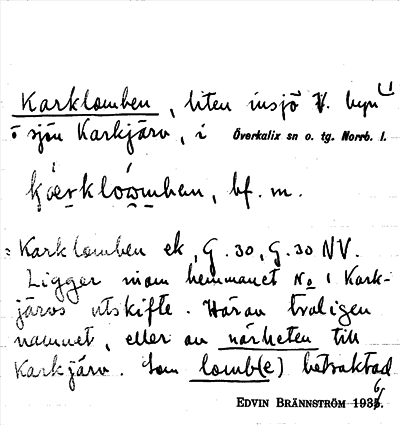 Karklomben, liten insjö V. byn
ö sjön Karkjärv, i Överkalix sn o. tg. Norrb. l.
kærklòmben, bf. m.
= Karklomben ek. G. 30, G. 30 NV.
Ligger inom hemmanet No 1 Kark-
järvs utskifte. Härav troligen
namnet, eller av närheten till
Karkjärv. Som lomb(e) betraktad
EDVIN BRÄNNSTRÖM 1936.